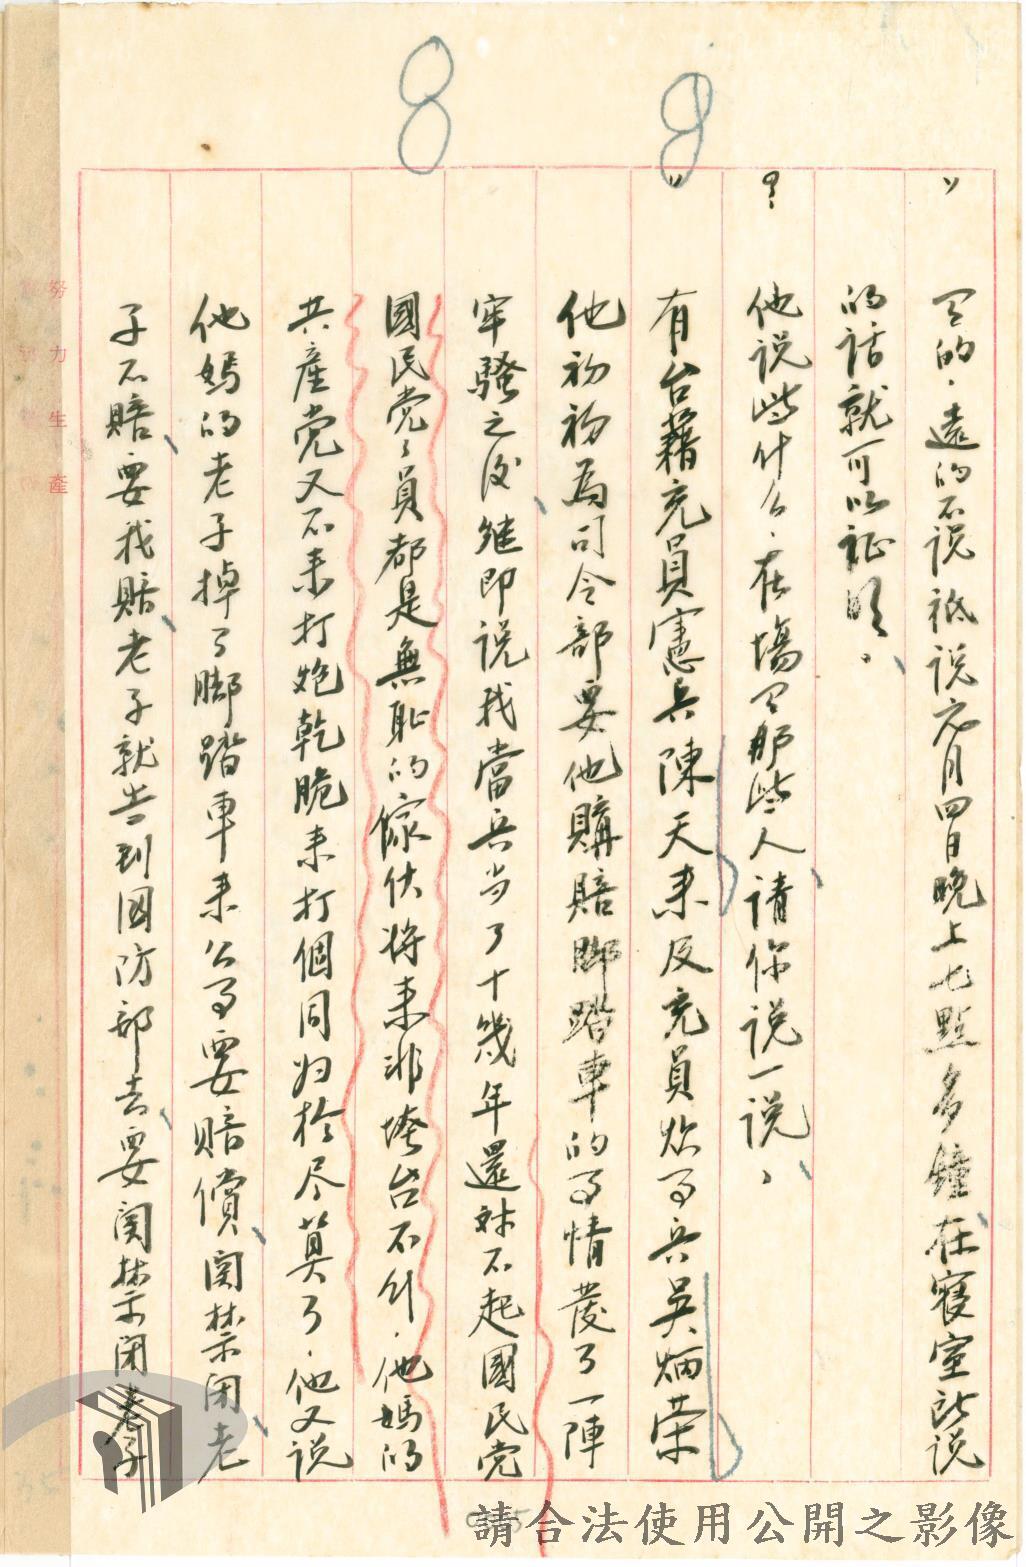 8 8
〃 里的，遠的不说祗说元月四日晚上七點多鐘在寝室所说
的話就可以证明。
? 他说些什么，在塲里那些人请你说一说，
〃 有台籍充員憲兵陳天来及充員炊事兵吴炳荣
他初初為司令部要他購賠脚踏車的事情發了一陣
牢騷之後继即说我當兵当了十幾年還对不起國民党
國民党々員都是無恥的傢伙将来非垮台不行，他媽的
共產党又不来打炮乾脆来打個同归於尽算了，他又说
他媽的老子掉了脚踏車来公事要賠償関禁闭老
子不賠要我賠老子就告到國防部去要関禁闭老子
努力生產
請合法使用公開之影像